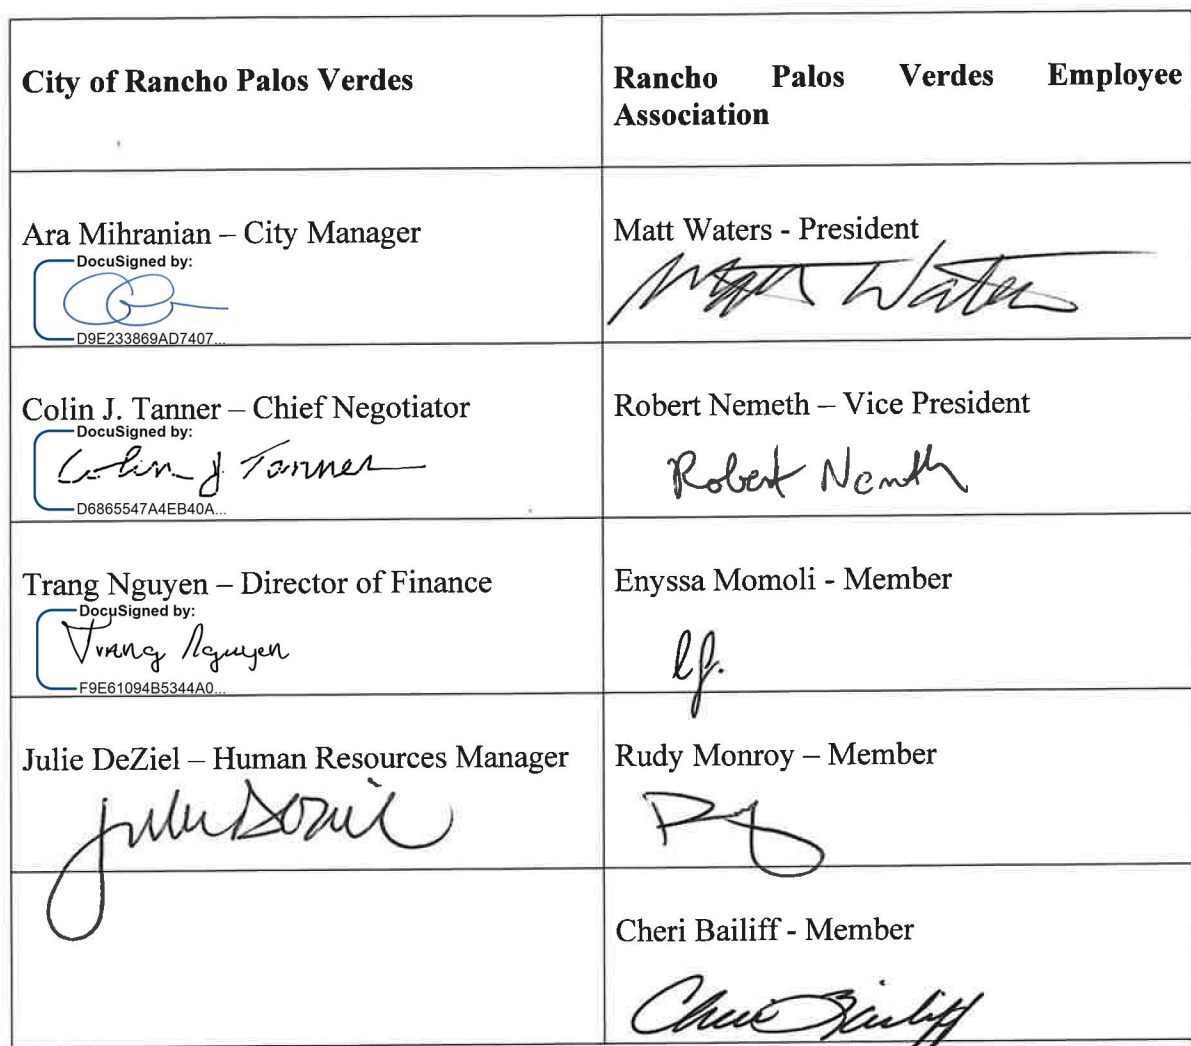 City of Rancho Palos Verdes
Rancho Palos Verdes Employee
Association
Ara Mihranian – City Manager
DocuSigned by:
D9E233869AD7407...
Matt Waters - President
Matt Waters
Colin J. Tanner – Chief Negotiator
DocuSigned by:
Colin J Tanner
D6865547A4EB40A...
Robert Nemeth – Vice President
Robert Nemeth
Trang Nguyen – Director of Finance
DocuSigned by:
Trang Nguyen
F9E61094B5344A0...
Enyssa Momoli - Member
Julie DeZiel – Human Resources Manager
Julie DeZiel
Rudy Monroy – Member
Cheri Bailiff - Member
Cheri Bailiff